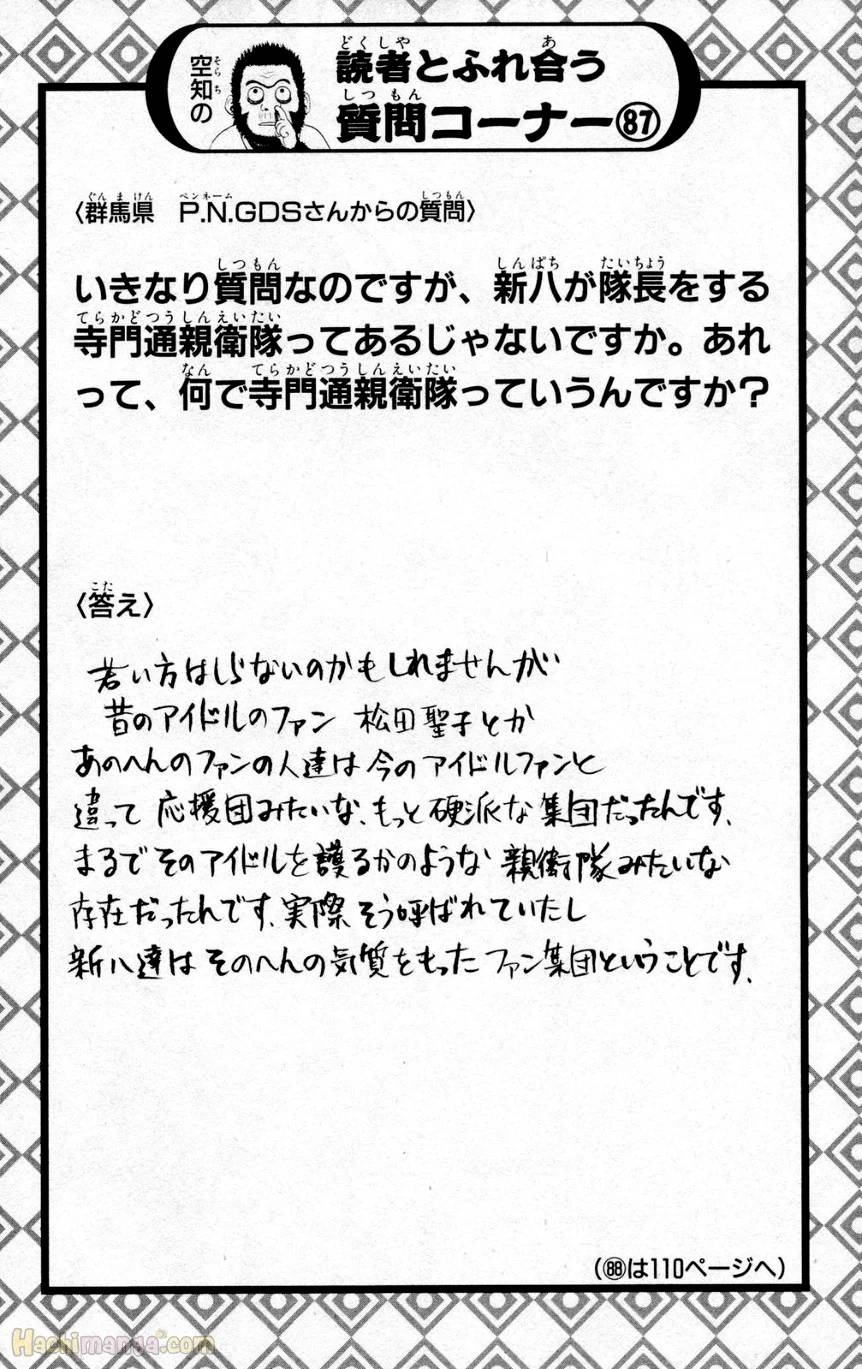 空知の
読者とふれ合う
質問コーナー87
〈群馬県 P.N.GDSさんからの質問〉
いきなり質問なのですが、新八が隊長をする
寺門通親衛隊ってあるじゃないですか。あれ
って、何で寺門通親衛隊っていうんですか？
〈答え〉
若い方はしらないのかもしれませんが
昔のアイドルのファン 松田聖子とか
あのへんのファンの人達は今のアイドルファンと
違って 応援団みたいな、もっと硬派な集団だったんです、
まるでそのアイドルを護るかのような 親衛隊みたいな
存在だったんです、実際そう呼ばれていたし
新八達は そのへんの気質をもったファン集団ということです、
（88は110ページへ）
Hachimanga.com